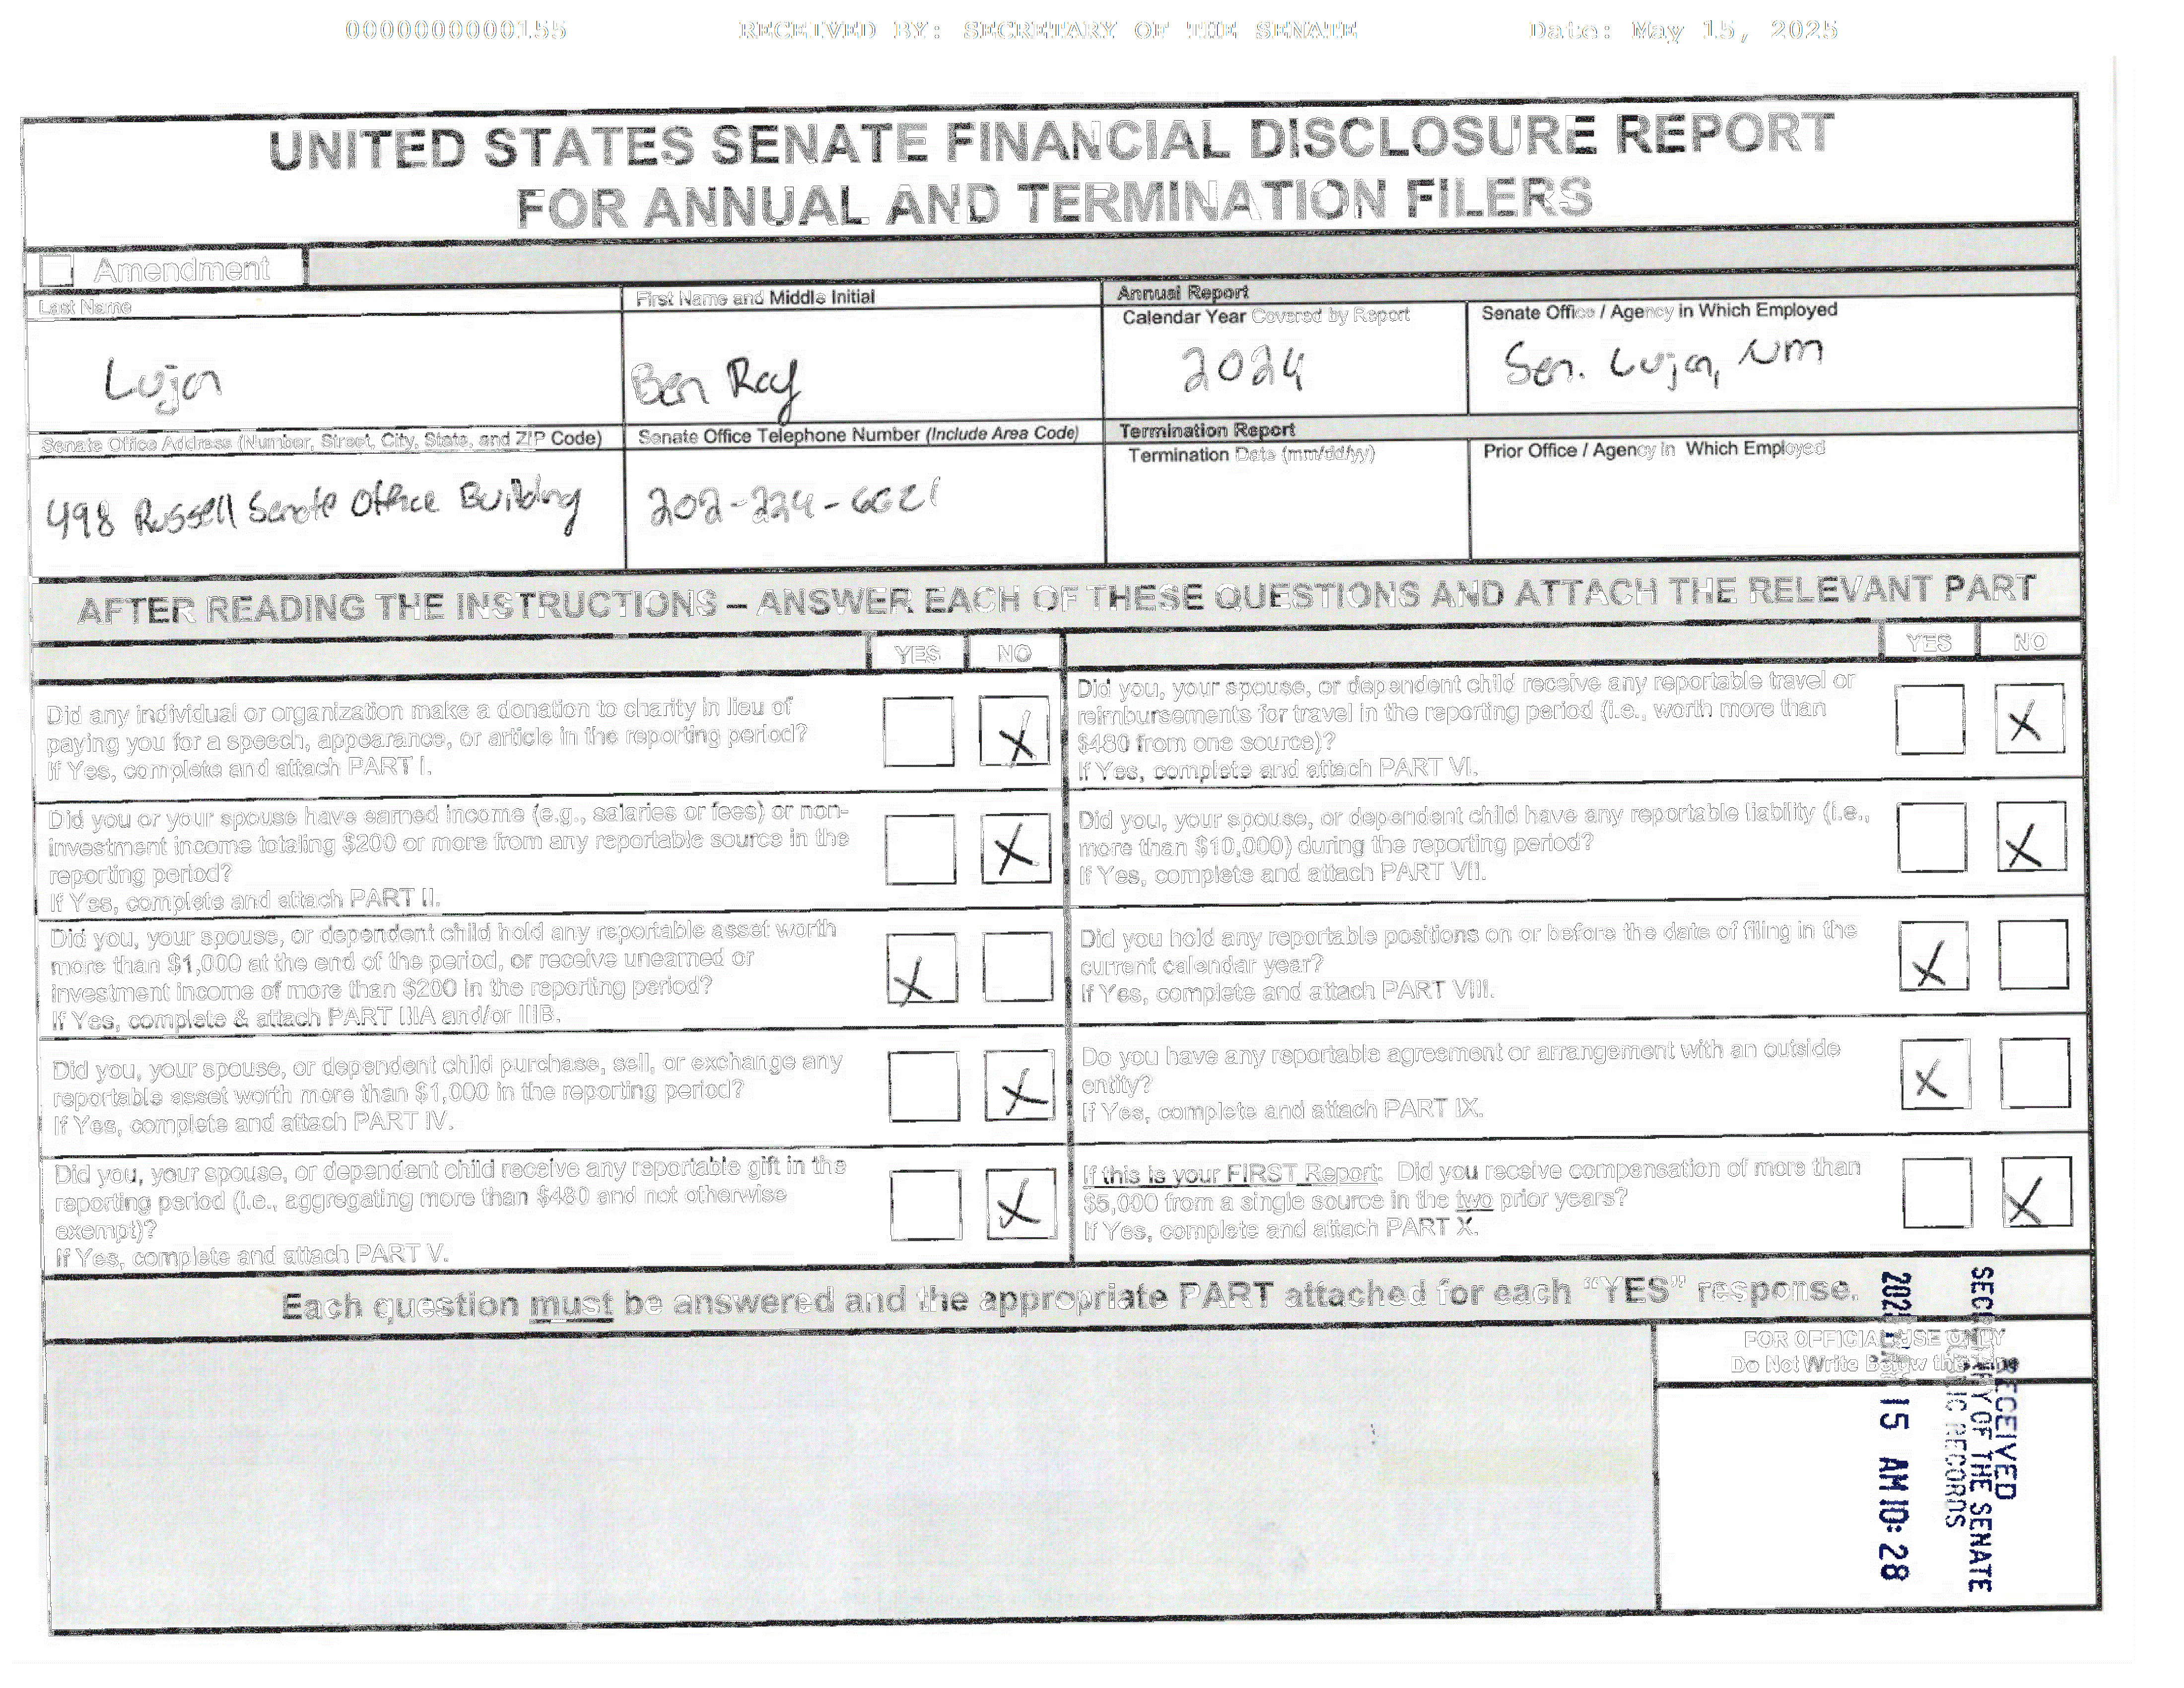 0000000000155 RECEIVED BY: SECRETARY OF THE SENATE Date: May 15, 2025
UNITED STATES SENATE FINANCIAL DISCLOSURE REPORT
FOR ANNUAL AND TERMINATION FILERS
Amendment
Last Name
Lujan
First Name and Middle Initial
Ben Ray
Annual Report
Calendar Year Covered by Report
2024
Senate Office / Agency in Which Employed
Sen. Lujan, NM
Senate Office Address (Number, Street, City, State, and ZIP Code)
498 Russell Senate Office Building
Senate Office Telephone Number (Include Area Code)
202-224-6621
Termination Report
Termination Date (mm/dd/yy)
Prior Office / Agency in Which Employed
AFTER READING THE INSTRUCTIONS – ANSWER EACH OF THESE QUESTIONS AND ATTACH THE RELEVANT PART
YES NO
Did any individual or organization make a donation to charity in lieu of
paying you for a speech, appearance, or article in the reporting period?
If Yes, complete and attach PART I.
X
Did you or your spouse have earned income (e.g., salaries or fees) or non-
investment income totaling $200 or more from any reportable source in the
reporting period?
If Yes, complete and attach PART II.
X
Did you, your spouse, or dependent child hold any reportable asset worth
more than $1,000 at the end of the period, or receive unearned or
investment income of more than $200 in the reporting period?
If Yes, complete & attach PART IIIA and/or IIIB.
X
Did you, your spouse, or dependent child purchase, sell, or exchange any
reportable asset worth more than $1,000 in the reporting period?
If Yes, complete and attach PART IV.
X
Did you, your spouse, or dependent child receive any reportable gift in the
reporting period (i.e., aggregating more than $480 and not otherwise
exempt)?
If Yes, complete and attach PART V.
X
YES NO
Did you, your spouse, or dependent child receive any reportable travel or
reimbursements for travel in the reporting period (i.e., worth more than
$480 from one source)?
If Yes, complete and attach PART VI.
X
Did you, your spouse, or dependent child have any reportable liability (i.e.,
more than $10,000) during the reporting period?
If Yes, complete and attach PART VII.
X
Did you hold any reportable positions on or before the date of filing in the
current calendar year?
If Yes, complete and attach PART VIII.
X
Do you have any reportable agreement or arrangement with an outside
entity?
If Yes, complete and attach PART IX.
X
If this is your FIRST Report: Did you receive compensation of more than
$5,000 from a single source in the two prior years?
If Yes, complete and attach PART X.
X
Each question must be answered and the appropriate PART attached for each “YES” response.
FOR OFFICIAL USE ONLY
Do Not Write Below this
RECEIVED
SECRETARY OF THE SENATE
RECORDS
15 AM 10: 28